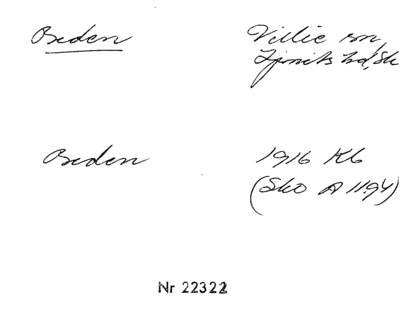 Beden Villie sn,
Ljunits hd, Sk
Beden 1916 Kb
(Sko A 1194)
Nr 22322